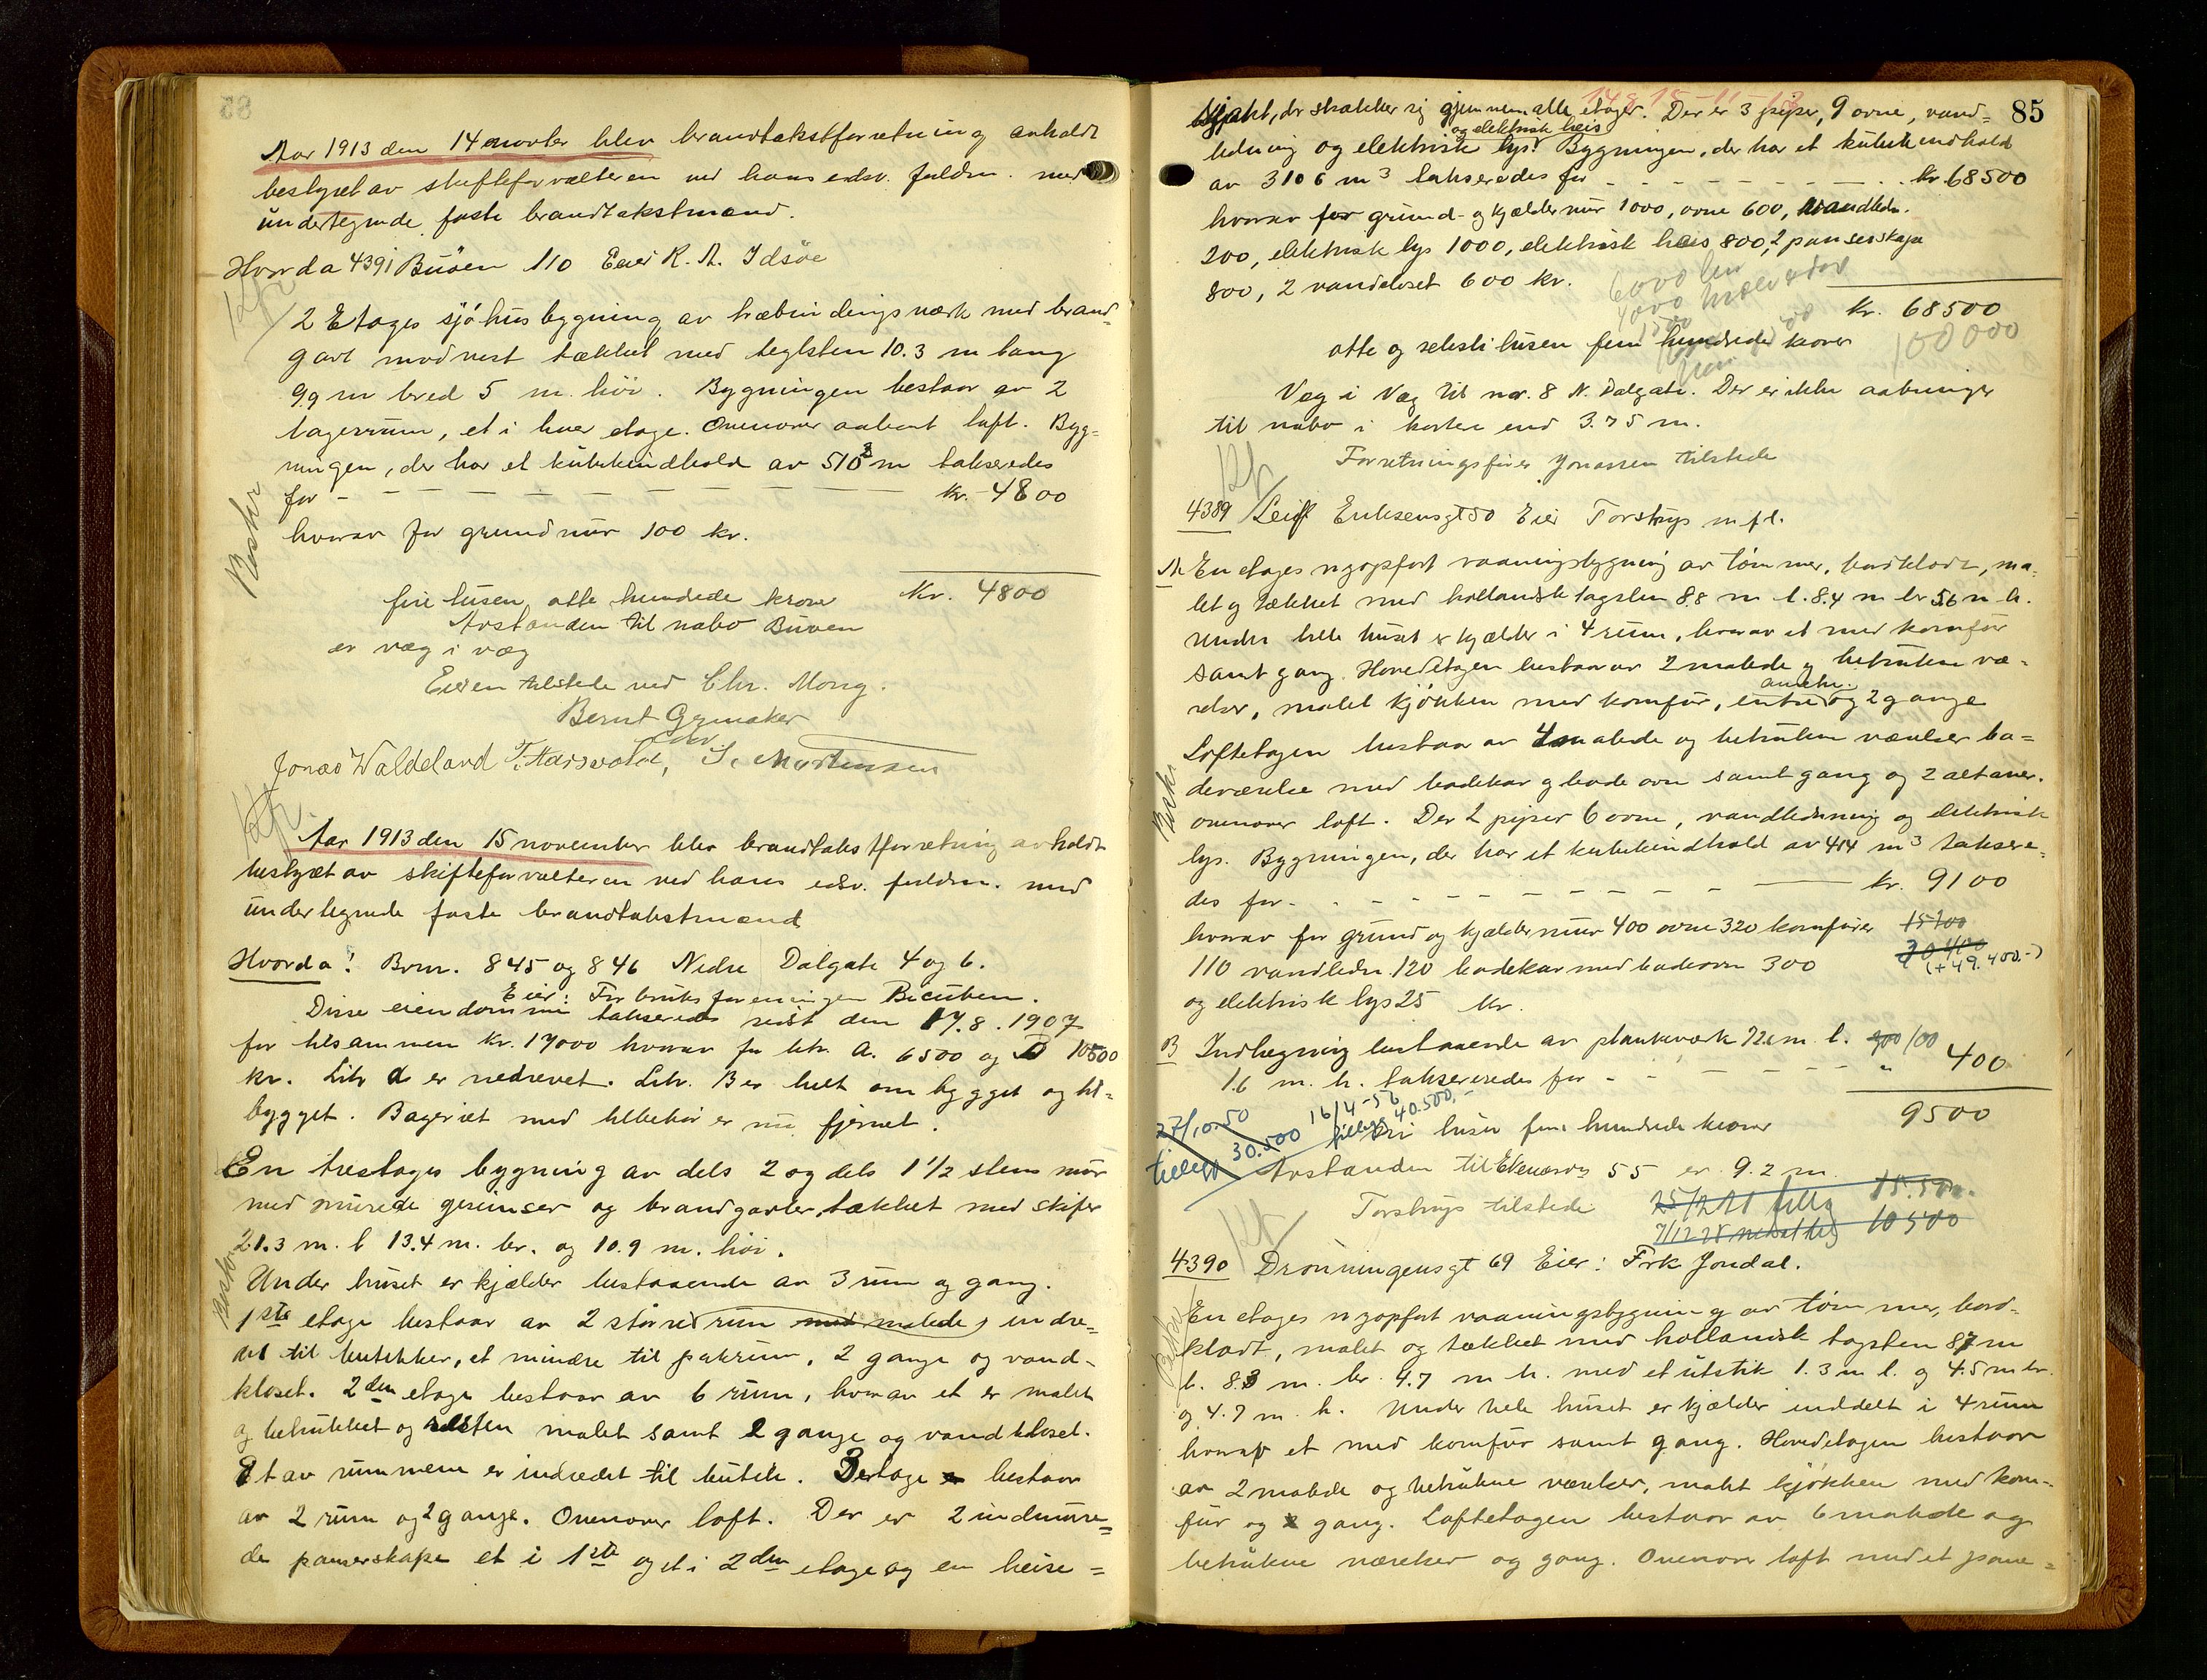 Aar 1913 den 14 novbr blev brandtakstforretning avholdt
bestyret av skifteforvalteren ved hans edsv. fuldm. med
undertegnede faste brandtakstmænd.
Hvorda 4391 Buøen 110 Eier R. A. Idsøe
2 Etages sjøhusbygning av træbindingsværk med brand-
gavl mod vest tækket med teglsten 10.3 m lang
9.9 m bred 5 m. høi. Bygningen bestaar av 2
lagerrum, et i hver etage. Ovenover aabent loft. Byg=
ningen, der har et kubikindhold av 510 m3 takseredes
for - - - - - - - - - kr. 4800
hvorav for grundmur 100 kr.
Beskr
Kr. 4800
fire tusen otte hundrede kroner
Avstanden til nabo Buøen
er væg i væg
Eieren tilstede ved Chr. Mong.
Bernt Grimaker
Jonas Waldeland T. Harsvold, S. Mortensen
Aar 1913 den 15 november blev brandtakstforretning avholdt
bestyret av skifteforvalteren ved hans edsv. fuldm. med
undertegnede faste brandtakstmænd
Hvorda! Brnr. 845 og 846 Nedre Dalgate 4 og 6.
Eier: Forbruksforeningen Bicuben.
Disse eiendomme takseredes sidst den 17.8.1907
for tilsammen Kr. 17000 hvorav for litr. A. 6500 og B 10500
kr. Litr A er nedrevet. Litr. B er helt ombygget og til=
bygget. Bageriet med tilbehør er nu fjernet.
En treetages bygning av dels 2 og dels 1 1/2 stens mur
med murede gesimser og brandgavler, tækket med skifer
21.3 m. l 13.4 m. br. og 10.9 m. høi.
Under huset er kjælder bestaaende av 3 rum og gang.
1ste etage bestaar av 2 større rum med malede, indre-
det til butikker, et mindre til pakrum, 2 gange og vand-
kloset. 2den etage bestaar av 6 rum, hvorav et er malet
og betrukket og resten malet samt 2 gange og vandkloset.
Et av rummene er indredet til butik. 3 etage bestaar
av 2 rum og 2 gange. Ovenover loft. Der er 2 indmure=
de panserskape et i 1ste og et i 2den etage og en heise=
85
sjakt, der strækker sig gjennem alle etager. Der er 3 piper, 9 ovne, vand=
og elektrisk heis
ledning og elektrisk lys. Bygningen, der har et kubikindhold
av 3106 m3 takseredes for - - - - - - - - kr. 68500
hvorav for grund- og kjældermur 1000, ovne 600, vandledn.
200, elektrisk lys 1000, elektrisk heis 800, 2 panserskape
800, 2 vandcloset 600 kr.
kr. 68500
100000
otte og seksti tusen fem hundrede kroner
Væg i væg til nr. 8 N. Dalgate. Der er ikke aabninger
til nabo i kortere end 3.75 m.
Forretningsfører Jonassen tilstede
4389 Leif Eriksensgt 50 Eier Torstrys m.fl.
A. En etages nyopført vaaningsbygning av tømmer, bordklædt, ma=
let og tækket med hollandsk tagsten 8.8 m l. 8.4 m br 5.6 m h.
Under hele huset er kjælder i 4 rum, hvorav et med komfur
samt gang. Hovedetagen bestaar av 2 malede og betrukne væ-
relser, malet kjøkken med komfur, entre og 2 gange
Loftetagen bestaar av 4 malede og betrukne værelser ba=
deværelse med badekar og badeovn samt gang og 2 altaner.
ovenover loft. Der 2 piper 6 ovne, vandledning og elektrisk
lys. Bygningen, der har et kubikindhold av 414 m3 taksere=
des for - - - - - - - - kr. 9100
Beskr
hvorav for grund og kjældermur 400 ovne 320 komfurer 15200
110 vandledn. 120 badekar med badeovn 300 30400
(+49.400.-)
og elektrisk lys 25 kr.
B Indhegning bestaaende av plankeværk 72 m l. 900/00
1.6 m. h. takseredes for - - - - - - " 400
9500
27/10.50 16/4-56
tillegg 30.500 tillegg 40.500,-
ni tusen fem hundrede kroner
Avstanden til 55 er 9.2 m
Torstrys tilstede 25/2 21 tillg 15.500.
7/12 28 nedsat til 10500
4390 Dronningensgt 69 Eier: Frk Jondal.
En etages nyopført vaaningsbygning av tømmer, bord-
klædt, malet og tækket med hollandsk tagsten 8.7 m
l. 8.3 m. br. 4.7 m h. med et utstik 1.3 m l. og 4.5 m br.
og 4.7 m. h. Under hele huset er kjælder inddelt i 4 rum
hvorav et med komfur samt gang. Hovedetagen bestaar
av 2 malede og betrukne værelser, malet kjøkken med kom-
fur og gang. Loftetagen bestaar av 6 malede og
betrukne værelser og gang. Ovenover loft med et pane=